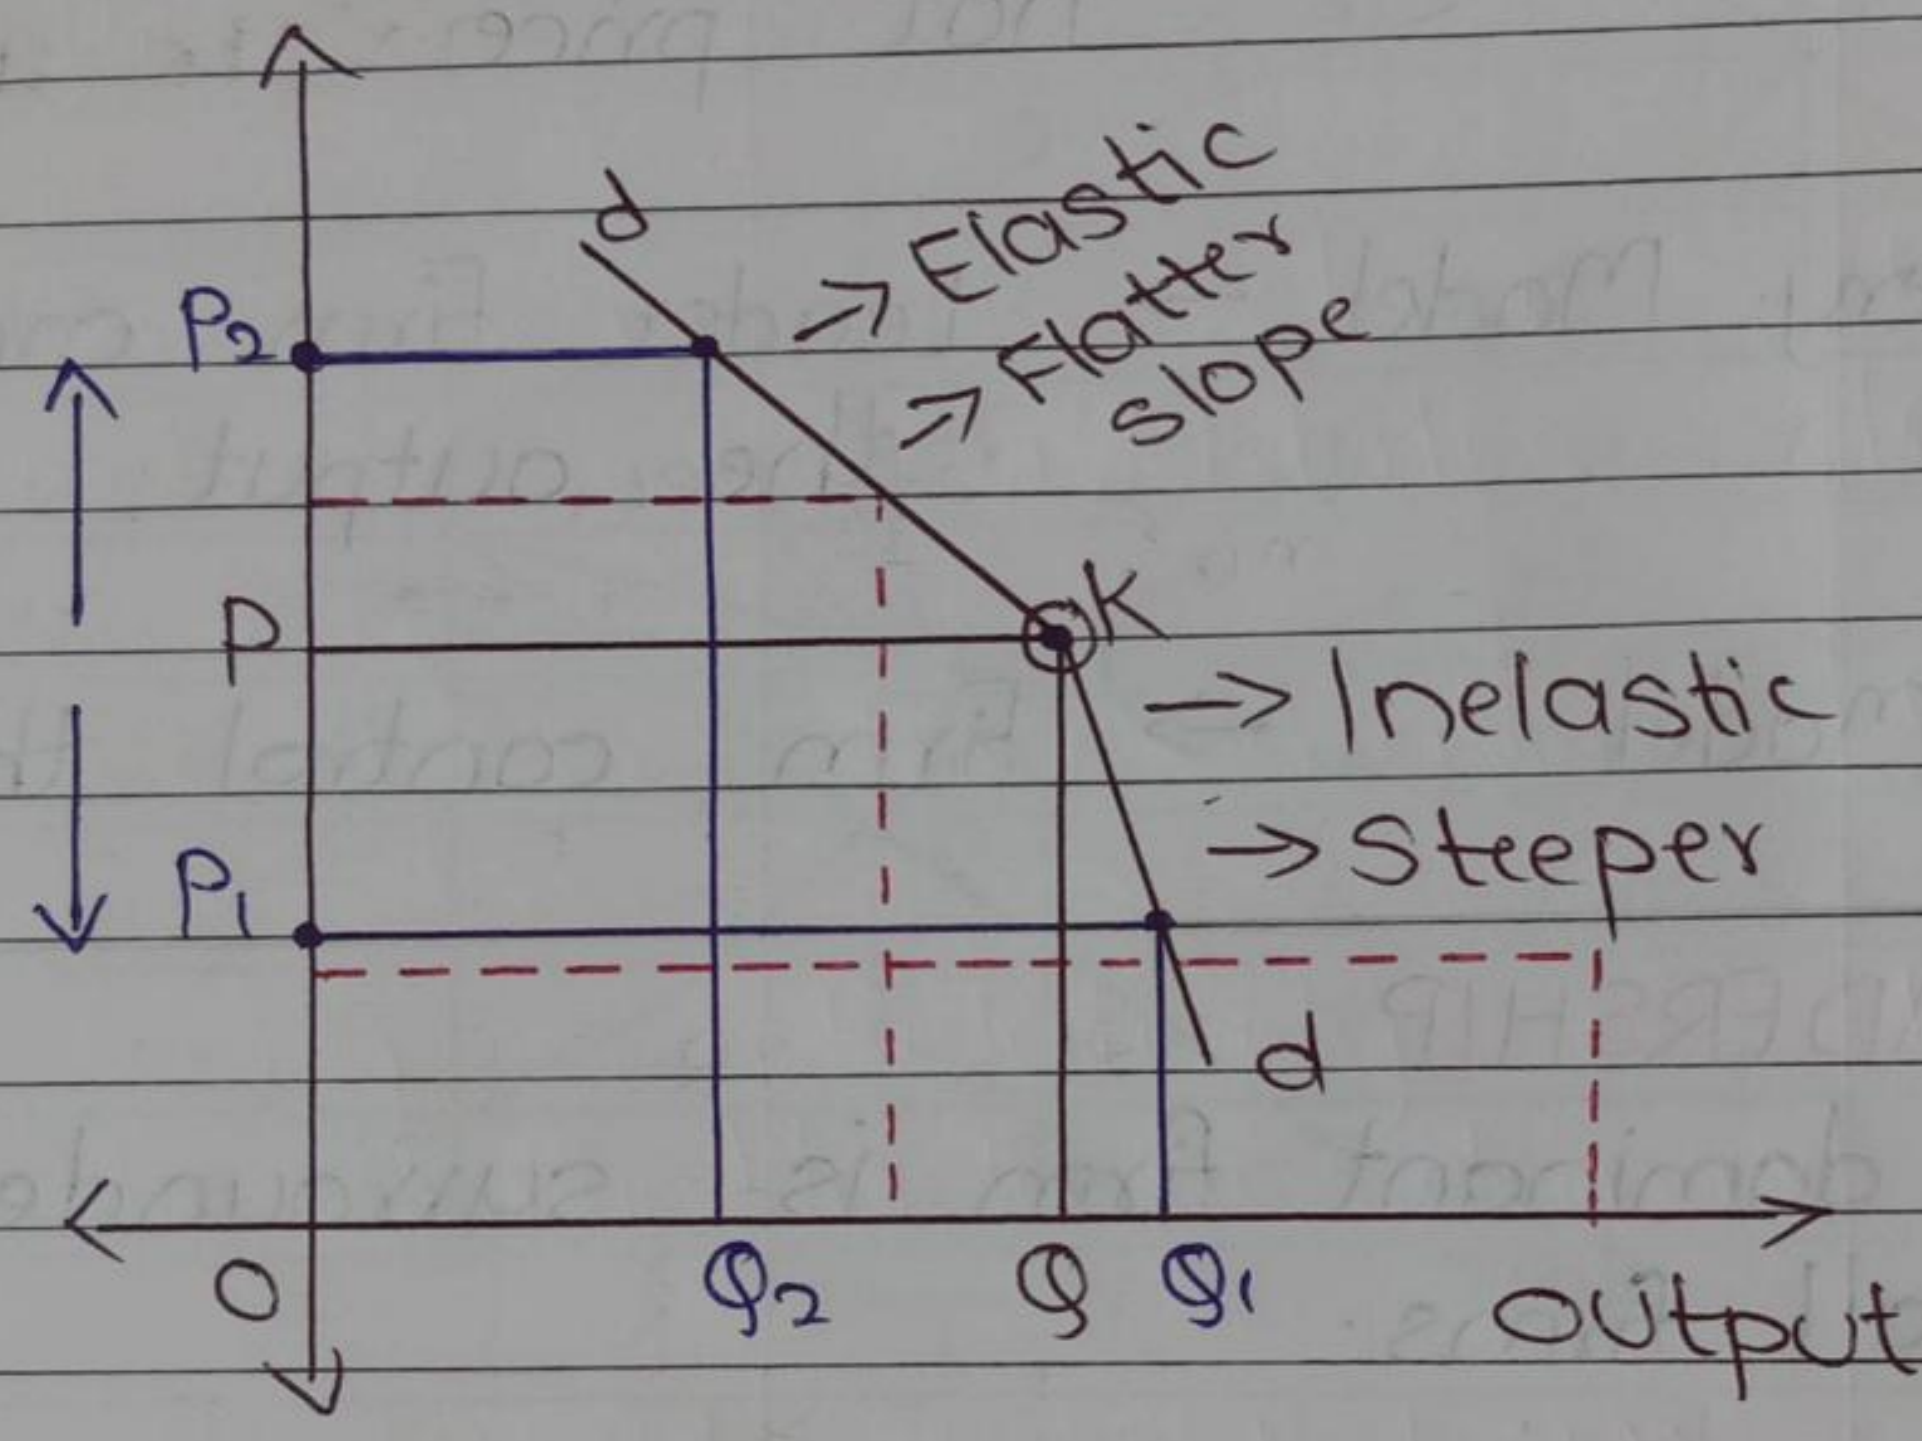 d
→ Elastic
→ Flatter
slope
P2
P
K
→ Inelastic
→ Steeper
P1
d
O
Q2
Q
Q1
output